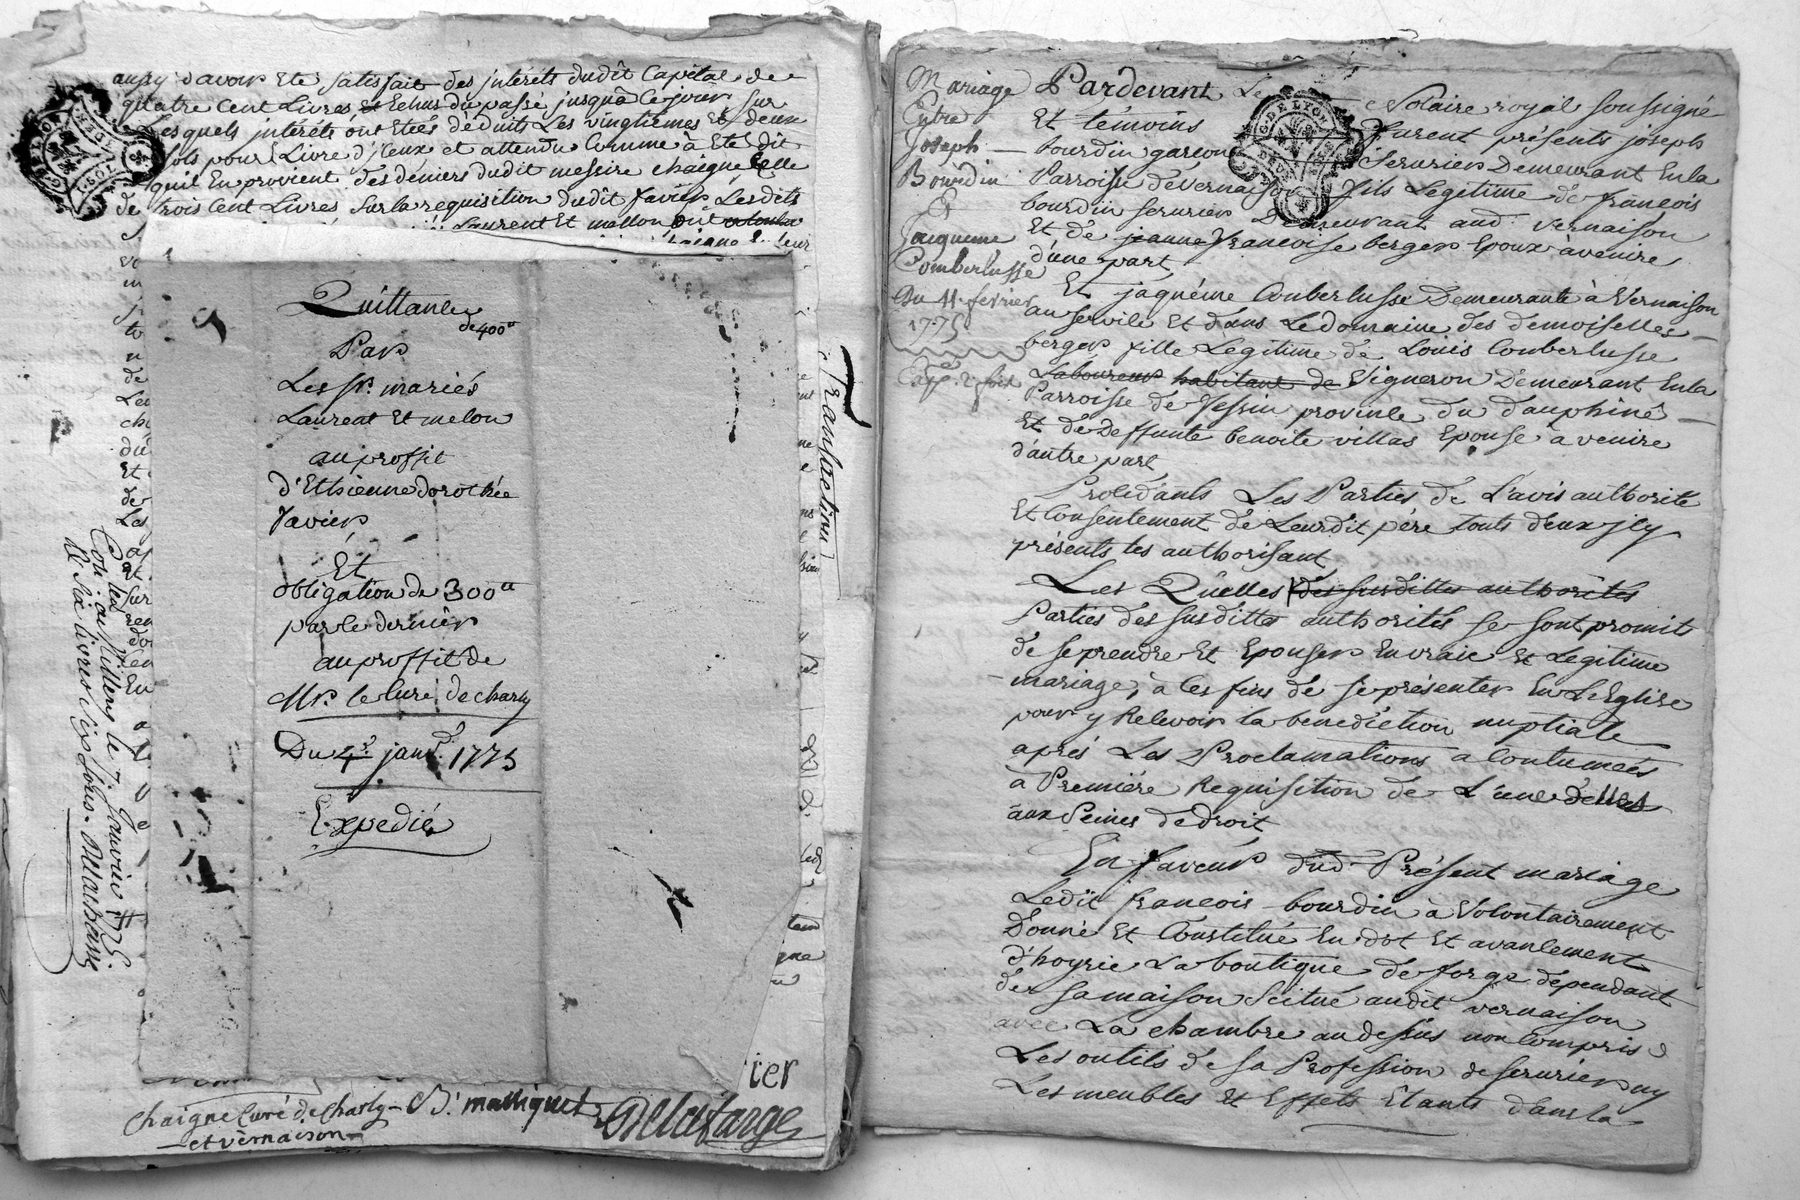 aussy d'avoir Eté satisfait des jntérêts dudit Capital de
quatre Cent Livres Echus du passé jusqu'à Ce jour sur
Lesquels jntérêts ont Etées déduits Les vingtiemes Et deux
sols pour Livre d'jceux et attendu Comme à Eté dit
quil En provient des deniers dudit messire chaigne Celle
de trois Cent Livres Sur la requisition dudit favier Les dits
Laurent Et mellon ont
Quittance
de 400ᵗᵗ
Par
Les srs. mariés
Laurent Et melon
au proffit
d'Ethienne dorothée
favier
Et
obligation de 300ᵗᵗ
par le dernier
au proffit de
Mr. le Curé de charly
Du 4e. janv. 1775
Expedié
Transaction
Con. au Millery le 7. Janvier 1775.
R. Six livres dix sous. Delachassagne
ier
chaigne Curé de charly B. Massiquet Delafarge
et vernaison
Mariage
Entre
Joseph
Bourdin
Et
Jacqueme
Comberlusse
Du 11. fevrier
1775
Exp. 2 fois
G. DE LYON
Pardevant Le Notaire royal soussigné
Et témoins furent présents joseph
bourdin garçon serurier Demeurant En la
Parroisse de vernaison fils Legitime de françois
bourdin serurier Demeurant aud. vernaison
Et de jeanne francoise berger Epoux à venire
d'une part
Et jaquéme Comberlusse Demeurante à Vernaison
au servile Et dans Le domaine des demoiselles
berger fille Legitime de Loüis Comberlusse
Laboureur habitant de Vigneron Demeurant En la
Parroisse de Jessin province du dauphiné
Et de deffunte benoite villas Epouse à venire
d'autre part
Procédants Les Parties de L'avis authorité
Et Consentement de Leurdit pére touts deux jcy
présents les authorisant
Les Quelles des susdittes authorités
Parties des susdittes authorités se sont promit
de se prendre Et Epouser En vraie Et Legitime
mariage, à Ces fins de se présenter En L'Eglise
pour y Recevoir la benediction nuptiale
aprés Les Proclamations acoutumées
à Premiére Requisition de L'une d'elles
aux Peines de droit
En faveur dud. Présent mariage
Ledit françois bourdin à Volontairement
Donné Et Constitué En dot Et avancement
d'hoyrie La boutique de forge dépendant
de sa maison Scitué audit vernaison
avec La chambre au dessus non Compris
Les outils de sa Profession de serurier ny
Les meubles Et Effets Etants dans la